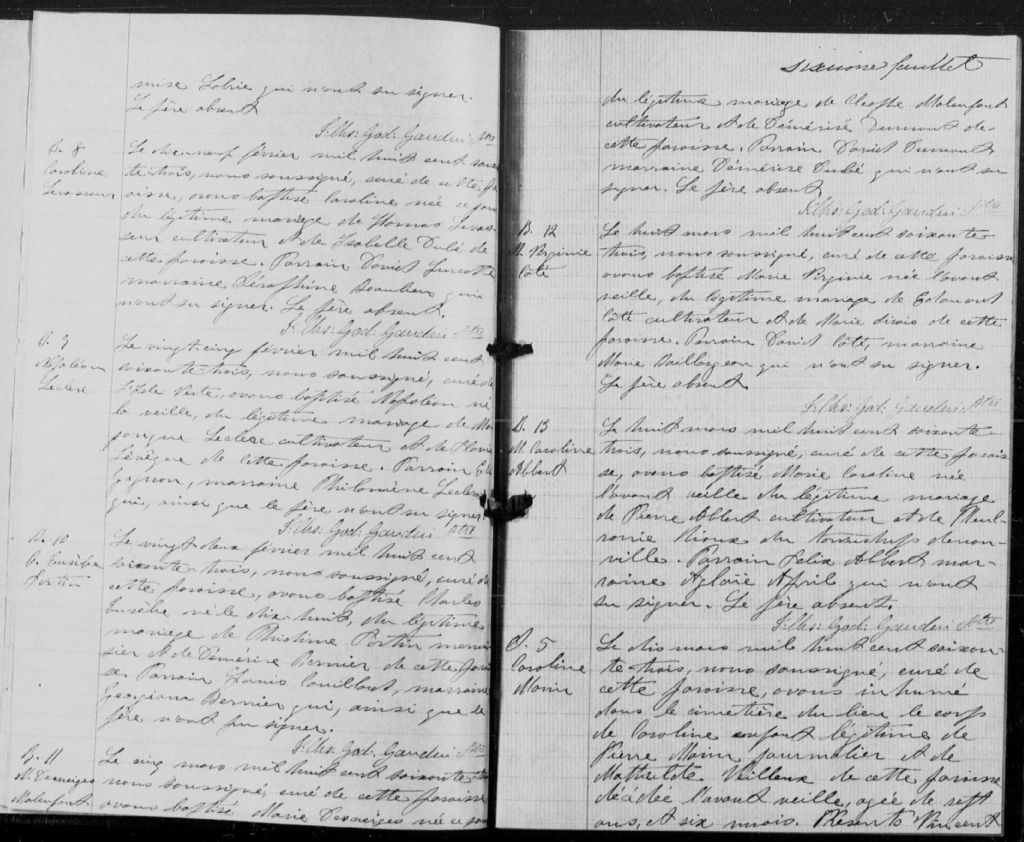 mise Labrie qui n'ont su signer.
Le père absent
J. Chs: God: Gaudin Ptre
B. 8
Caroline
Levasseur
Le dix-neuf février mil huit cent soixan
te-trois, nous soussigné, curé de cette pa
roisse, avons baptisé Caroline née ce jour
du légitime mariage de Thomas Levas-
seur cultivateur et de Isabelle Dubé de
cette paroisse. Parrain David Turcotte
marraine Séraphine Beaulieu qui
n'ont su signer. Le père absent.
J. Chs: God: Gaudin Ptre
B. 9
Napoléon
Leclerc
Le vingt-cinq février mil huit cent
soixante trois, nous soussigné, curé de
L'Isle Verte, avons baptisé Napoléon né
la veille, du légitime mariage de
Leclerc cultivateur et de
Lévèque de cette paroisse. Parrain
Gagnon, marraine Philomène Leclerc
qui, ainsi que le père n'ont su signer.
J. Chs: God: Gaudin Ptre
B. 10
C. Eusèbe
Fortin
Le vingt deux février mil huit cent
soixante trois, nous soussigné, curé de
cette paroisse, avons baptisé Charles
Eusèbe né le dix-huit, du légitime
mariage de Phidime Fortin menui
sier et de Démérise Bernier de cette parois
se. Parrain Louis Couillard, marraine
Georgiana Bernier qui, ainsi que le
père n'ont pu signer.
J. Chs: God: Gaudin Ptre
B. 11
M. Desneiges
Malenfant
Le cinq mars mil huit cent soixante trois
nous soussigné, curé de cette paroisse
avons baptisé Marie Desneiges née ce jour
sixième feuillet
du légitime mariage de Cleophe Malenfant
cultivateur et de Démérise Dumont de
cette paroisse. Parrain David Dumont
marraine Démérise Dubé qui n'ont su
signer. Le père absent
J. Chs: God: Gaudin Ptre
B. 12
M. Virginie
Côté
Le huit mars mil huit cent soixante
trois, nous soussigné, curé de cette paroisse
avons baptisé Marie Virginie née l'avant
veille, du légitime mariage de Edouard
Côté cultivateur et de Marie Sirois de cette
paroisse. Parrain David Côté, marraine
Marie Vaillancourt qui n'ont su signer.
Le père absent
J. Chs: God: Gaudin Ptre
B. 13
M. Caroline
Albert
Le huit mars mil huit cent soixante-
trois, nous soussigné, curé de cette parois
se, avons baptisé Marie Caroline née
l'avant veille du légitime mariage
de Pierre Albert cultivateur et de
Rioux du township denon-
ville. Parrain Felix Albert mar-
raine Aglaïe April qui n'ont
su signer. Le père absent.
J. Chs: God: Gaudin Ptre
S. 5
Caroline
Morin
Le dix mars mil huit cent soixan-
te-trois, nous soussigné, curé de
cette paroisse, avons inhumé
dans le cimetière du lieu le corps
de Caroline enfant légitime de
Pierre Morin journalier et de
Mathilde Veilleux de cette paroisse
décédée l'avant veille, agée de sept
ans, et six mois. Présents Vincent